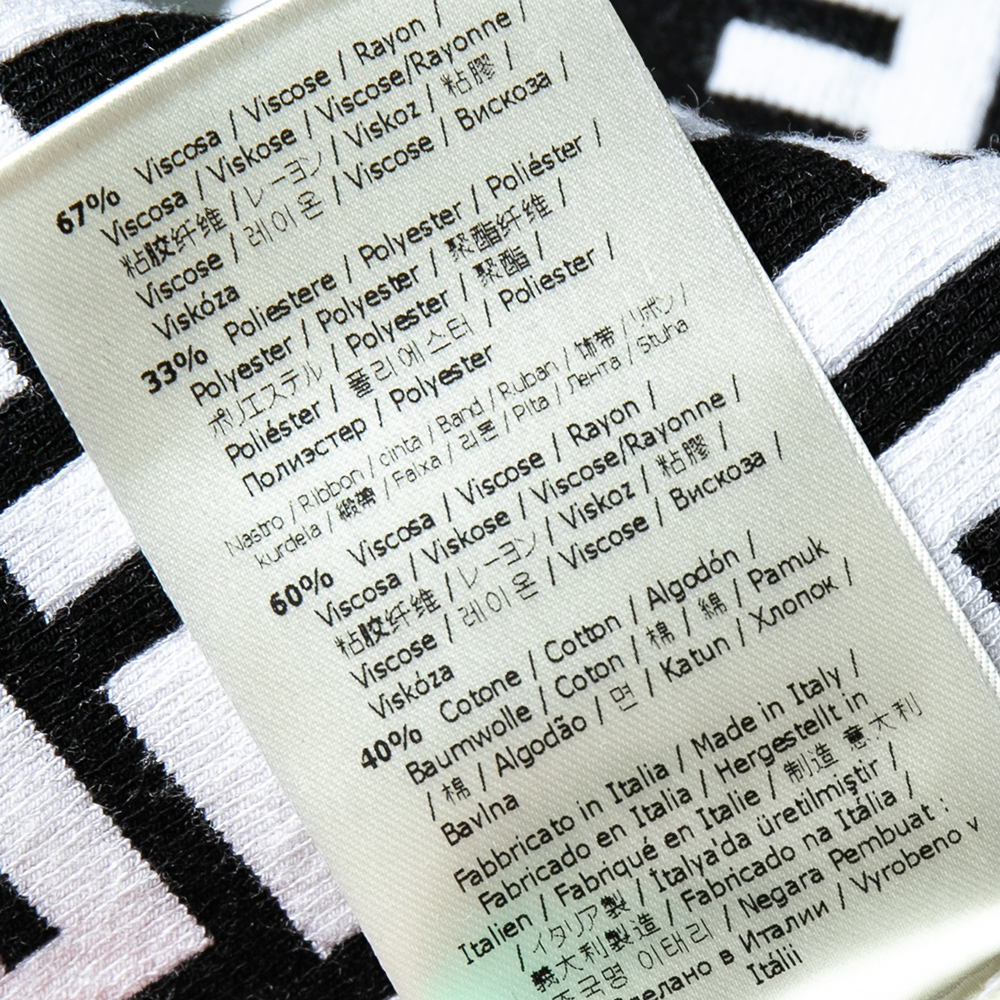 67% Viscosa / Viscose / Rayon /
Viscosa / Viskose / Viscose/Rayonne /
粘胶纤维 / レーヨン / Viskoz / 粘膠 /
Viscose / 레이온 / Viscose / Вискоза /
Viskóza
33% Poliestere / Polyester / Poliéster /
Polyester / Polyester / 聚酯纤维 /
ポリエステル / Polyester / 聚酯 /
Poliéster / 폴리에스터 / Poliester /
Полиэстер / Polyester
Nastro / Ribbon / cinta / Band / Ruban / 饰带 / リボン /
kurdela / 緞帶 / Faixa / 리본 / Pita / Лента / Stuha
60% Viscosa / Viscose / Rayon /
Viscosa / Viskose / Viscose/Rayonne /
粘胶纤维 / レーヨン / Viskoz / 粘膠 /
Viscose / 레이온 / Viscose / Вискоза /
Viskóza
40% Cotone / Cotton / Algodón /
Baumwolle / Coton / 棉 / 綿 / Pamuk
/ 棉 / Algodão / 면 / Katun / Хлопок /
Bavlna
Fabbricato in Italia / Made in Italy /
Fabricado en Italia / Hergestellt in
Italien / Fabriqué en Italie / 制造 意大利
/ イタリア製 / İtalya'da üretilmiştir /
義大利製造 / Fabricado na Itália /
제조국명 이태리 / Negara Pembuat :
Сделано в Италии / Vyrobeno v
Itálii